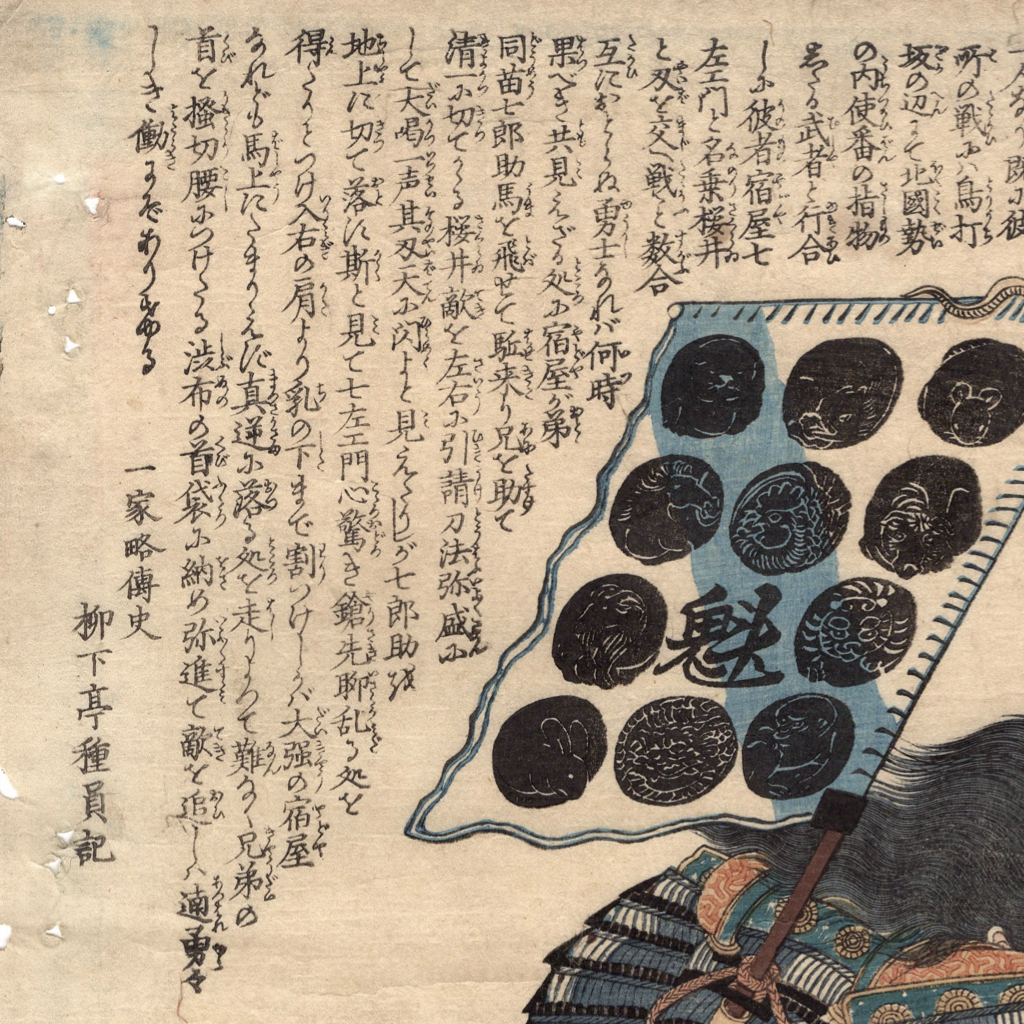 町の戦ふハ鳥打
坂の辺まて北國勢
の内使番の指物
志たる武者と行合
しに彼者宿屋七
左エ門と名乗桜井
と刄を交へ戦と数合
互におとらぬ勇士なれバ何時
果べき共見えざる処に宿屋が弟
同苗七郎助馬を飛せて駈来り兄を助て
清一に切てかゝる桜井敵を左右に引請刀法弥盛に
して大喝一声其刄天に閃よと見えたりしが七郎助を
地上に切て落に斯と見て七左エ門心驚き鎗先聊乱る処を
得たりとつけ入右の肩より乳の下まで割つけしかバ大强の宿屋
なれども馬上にたまりえず真逆に落る処を走りよつて難なく兄弟の
首を搔切腰につけたる渋布の首袋に納め弥進て敵を追しハ遖勇々
しき働にぞありける
一家略傳史
柳下亭種員記
魁